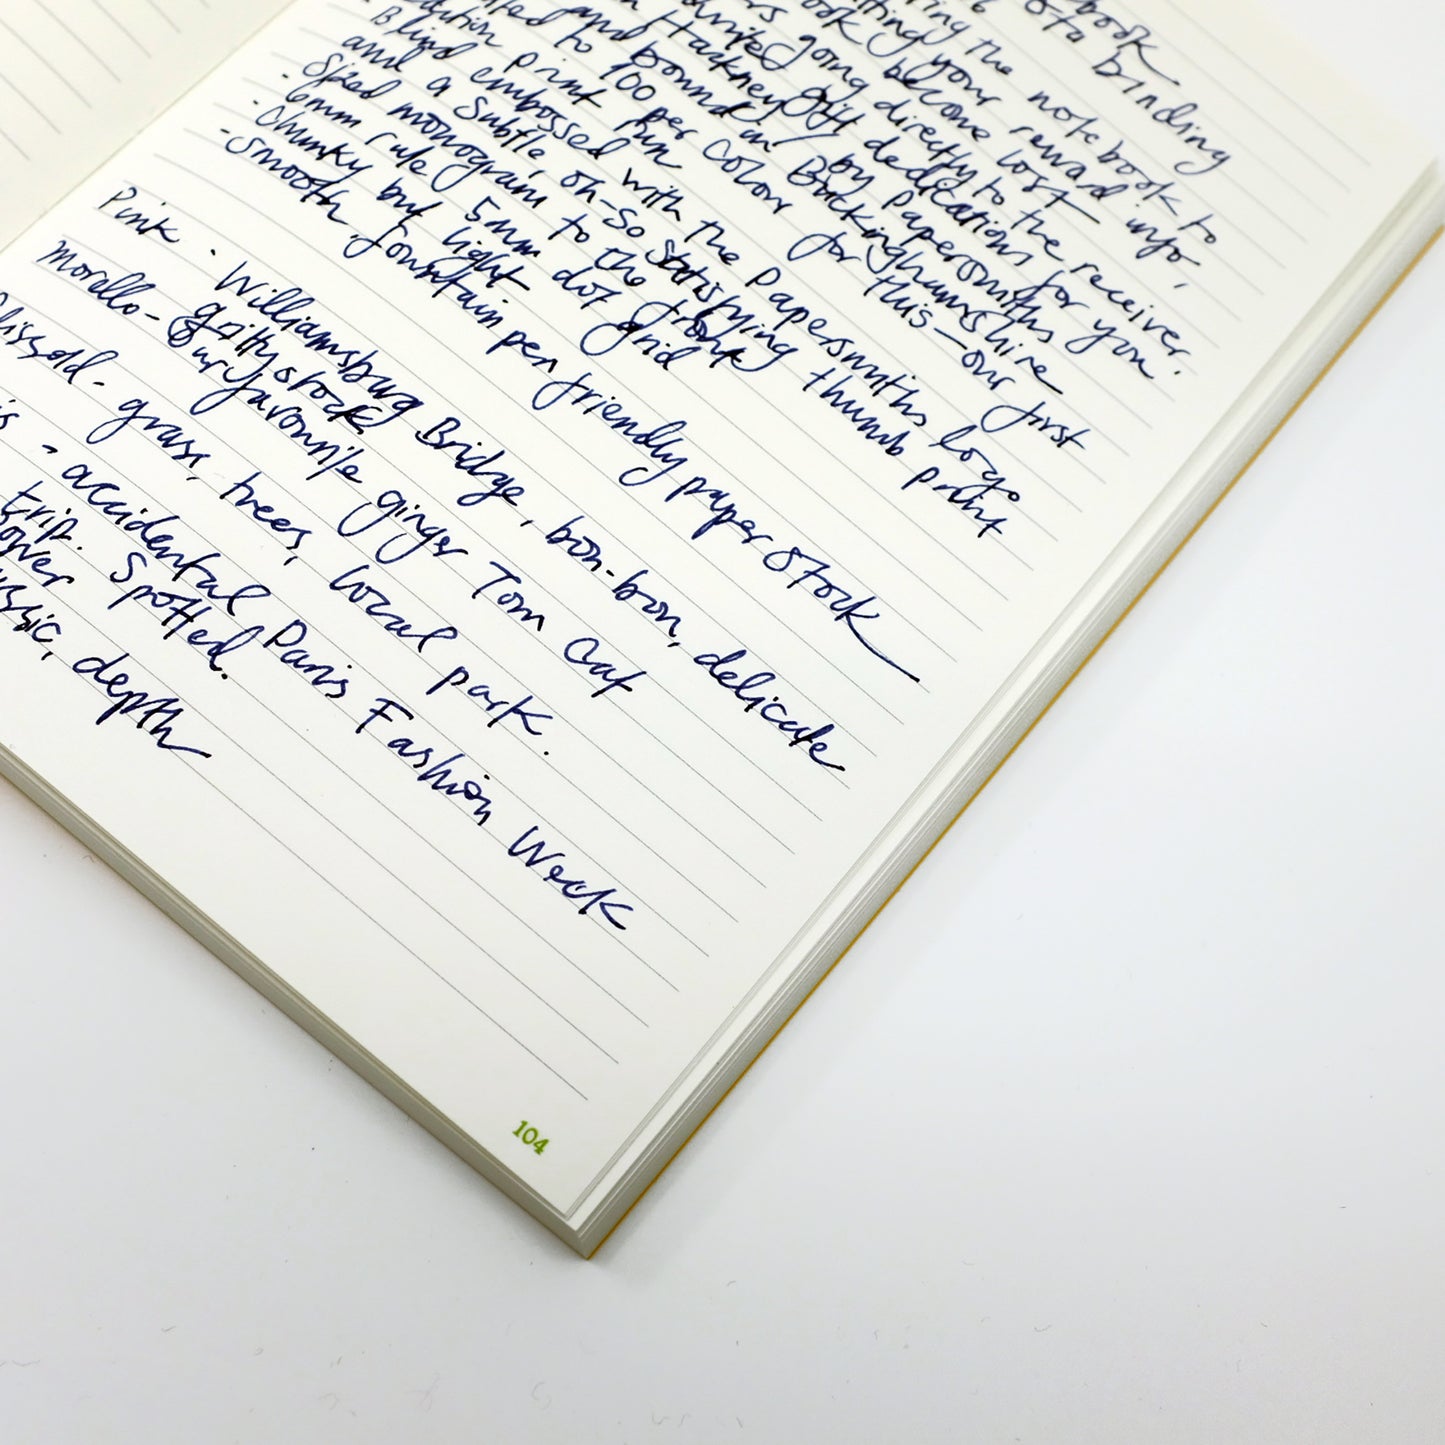 book.
ota binding
the notebook to
your reward info,
become lost
going directly to the receiver.
gift dedications for you
Hackney by Papersmiths
and bound in Buckinghamshire
to 100 per color for this — our first
print run
- Blind embossed with the Papersmiths logo
and a subtle, oh-so satisfying thumb print
sized monogram to the front
- 6mm rule 5mm dot grid
- Chunky but light
- Smooth fountain pen friendly paper stock
Pink . Williamsburg Bridge, bon-bon, delicate
gritty stock
Morello - Our favourite ginger Tom Cat
lissold - grass, trees, local park.
- accidental Paris Fashion Week
trip.
ower Spotted.
ssic, depth
104